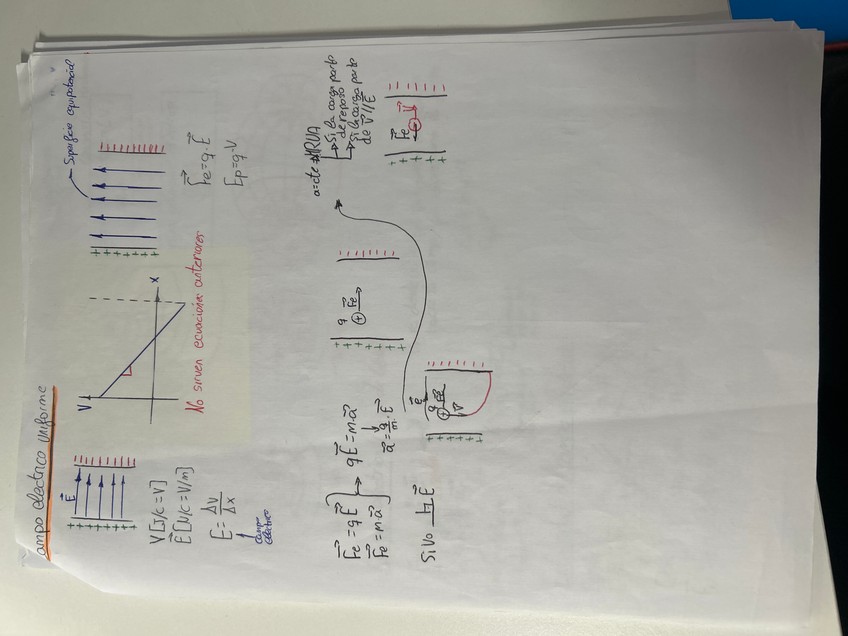 ampo electrico uniforme
E
V [J/C = V]
E [N/C = V/m]
E = ΔV/Δx
Campo electrico
V
x
No sirven ecuaciones anteriores
Superficie equipotencial
Fe = q · E
Ep = q · V
Fe = q E
Fe = m a
q E = m · a
a = q/m · E
q
Fe
a = cte MRUA
Si la carga parte de reposo
Si la carga parte de V // E
Fe
V
Si Vo ⊥ E
e
q
V